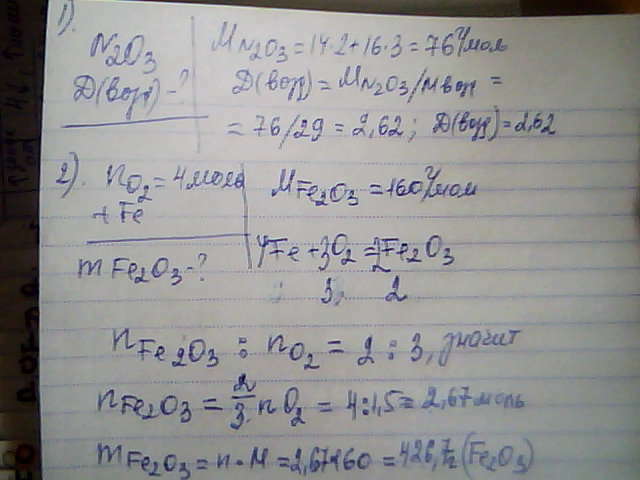 1). N2O3 MN2O3 = 14·2+16·3 = 76 г/моль
Д(возд) -? Д(возд) = MN2O3/Mвозд =
= 76/29 = 2,62; Д(возд) = 2,62
2). nO2 = 4 моль MFe2O3 = 160 г/моль
+ Fe
mFe2O3 -? 4Fe + 3O2 = 2Fe2O3
3 2
nFe2O3 : nO2 = 2 : 3, значит
nFe2O3 = 2/3 nO2 = 4:1,5 = 2,67 моль
mFe2O3 = n·M = 2,67·160 = 426,7г (Fe2O3)